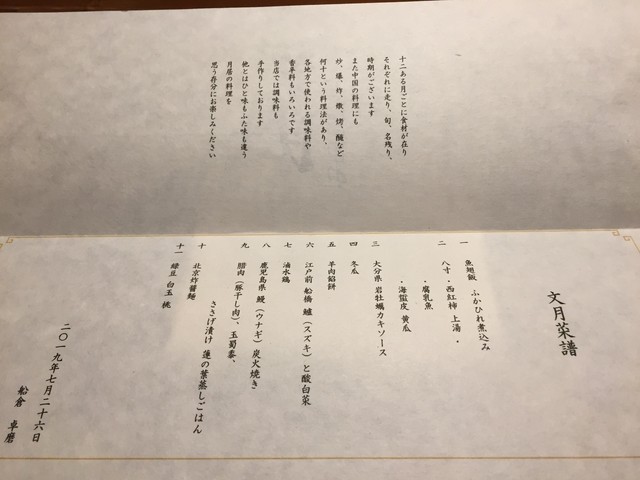 十二ある月ごとに食材が在り
それぞれに走り、旬、名残り、
時期がございます
また中国の料理にも
炒、爆、炸、燉、烤、醃など
何十という料理法があり、
各地方で使われる調味料や
香辛料もいろいろです
当店では調味料も
手作りしております
他とはひと味もふた味も違う
月居の料理を
思う存分にお楽しみください
文月菜譜
一 魚翅飯 ふかひれ煮込み
二 八寸・西紅柿 上湯・
・腐乳魚
・海蜇皮 黄瓜
三 大分県 岩牡蠣カキソース
四 冬瓜
五 羊肉餡餅
六 江戸前 船橋 鱸（スズキ）と酸白菜
七 滷水鶏
八 鹿児島県 鰻（ウナギ）炭火焼き
九 腊肉（豚干し肉）、玉蜀黍、
ささげ漬け 蓮の葉蒸しごはん
十 北京炸醤麺
十一 緑豆 白玉 桃
二〇一九年七月二十六日
船倉 卓磨